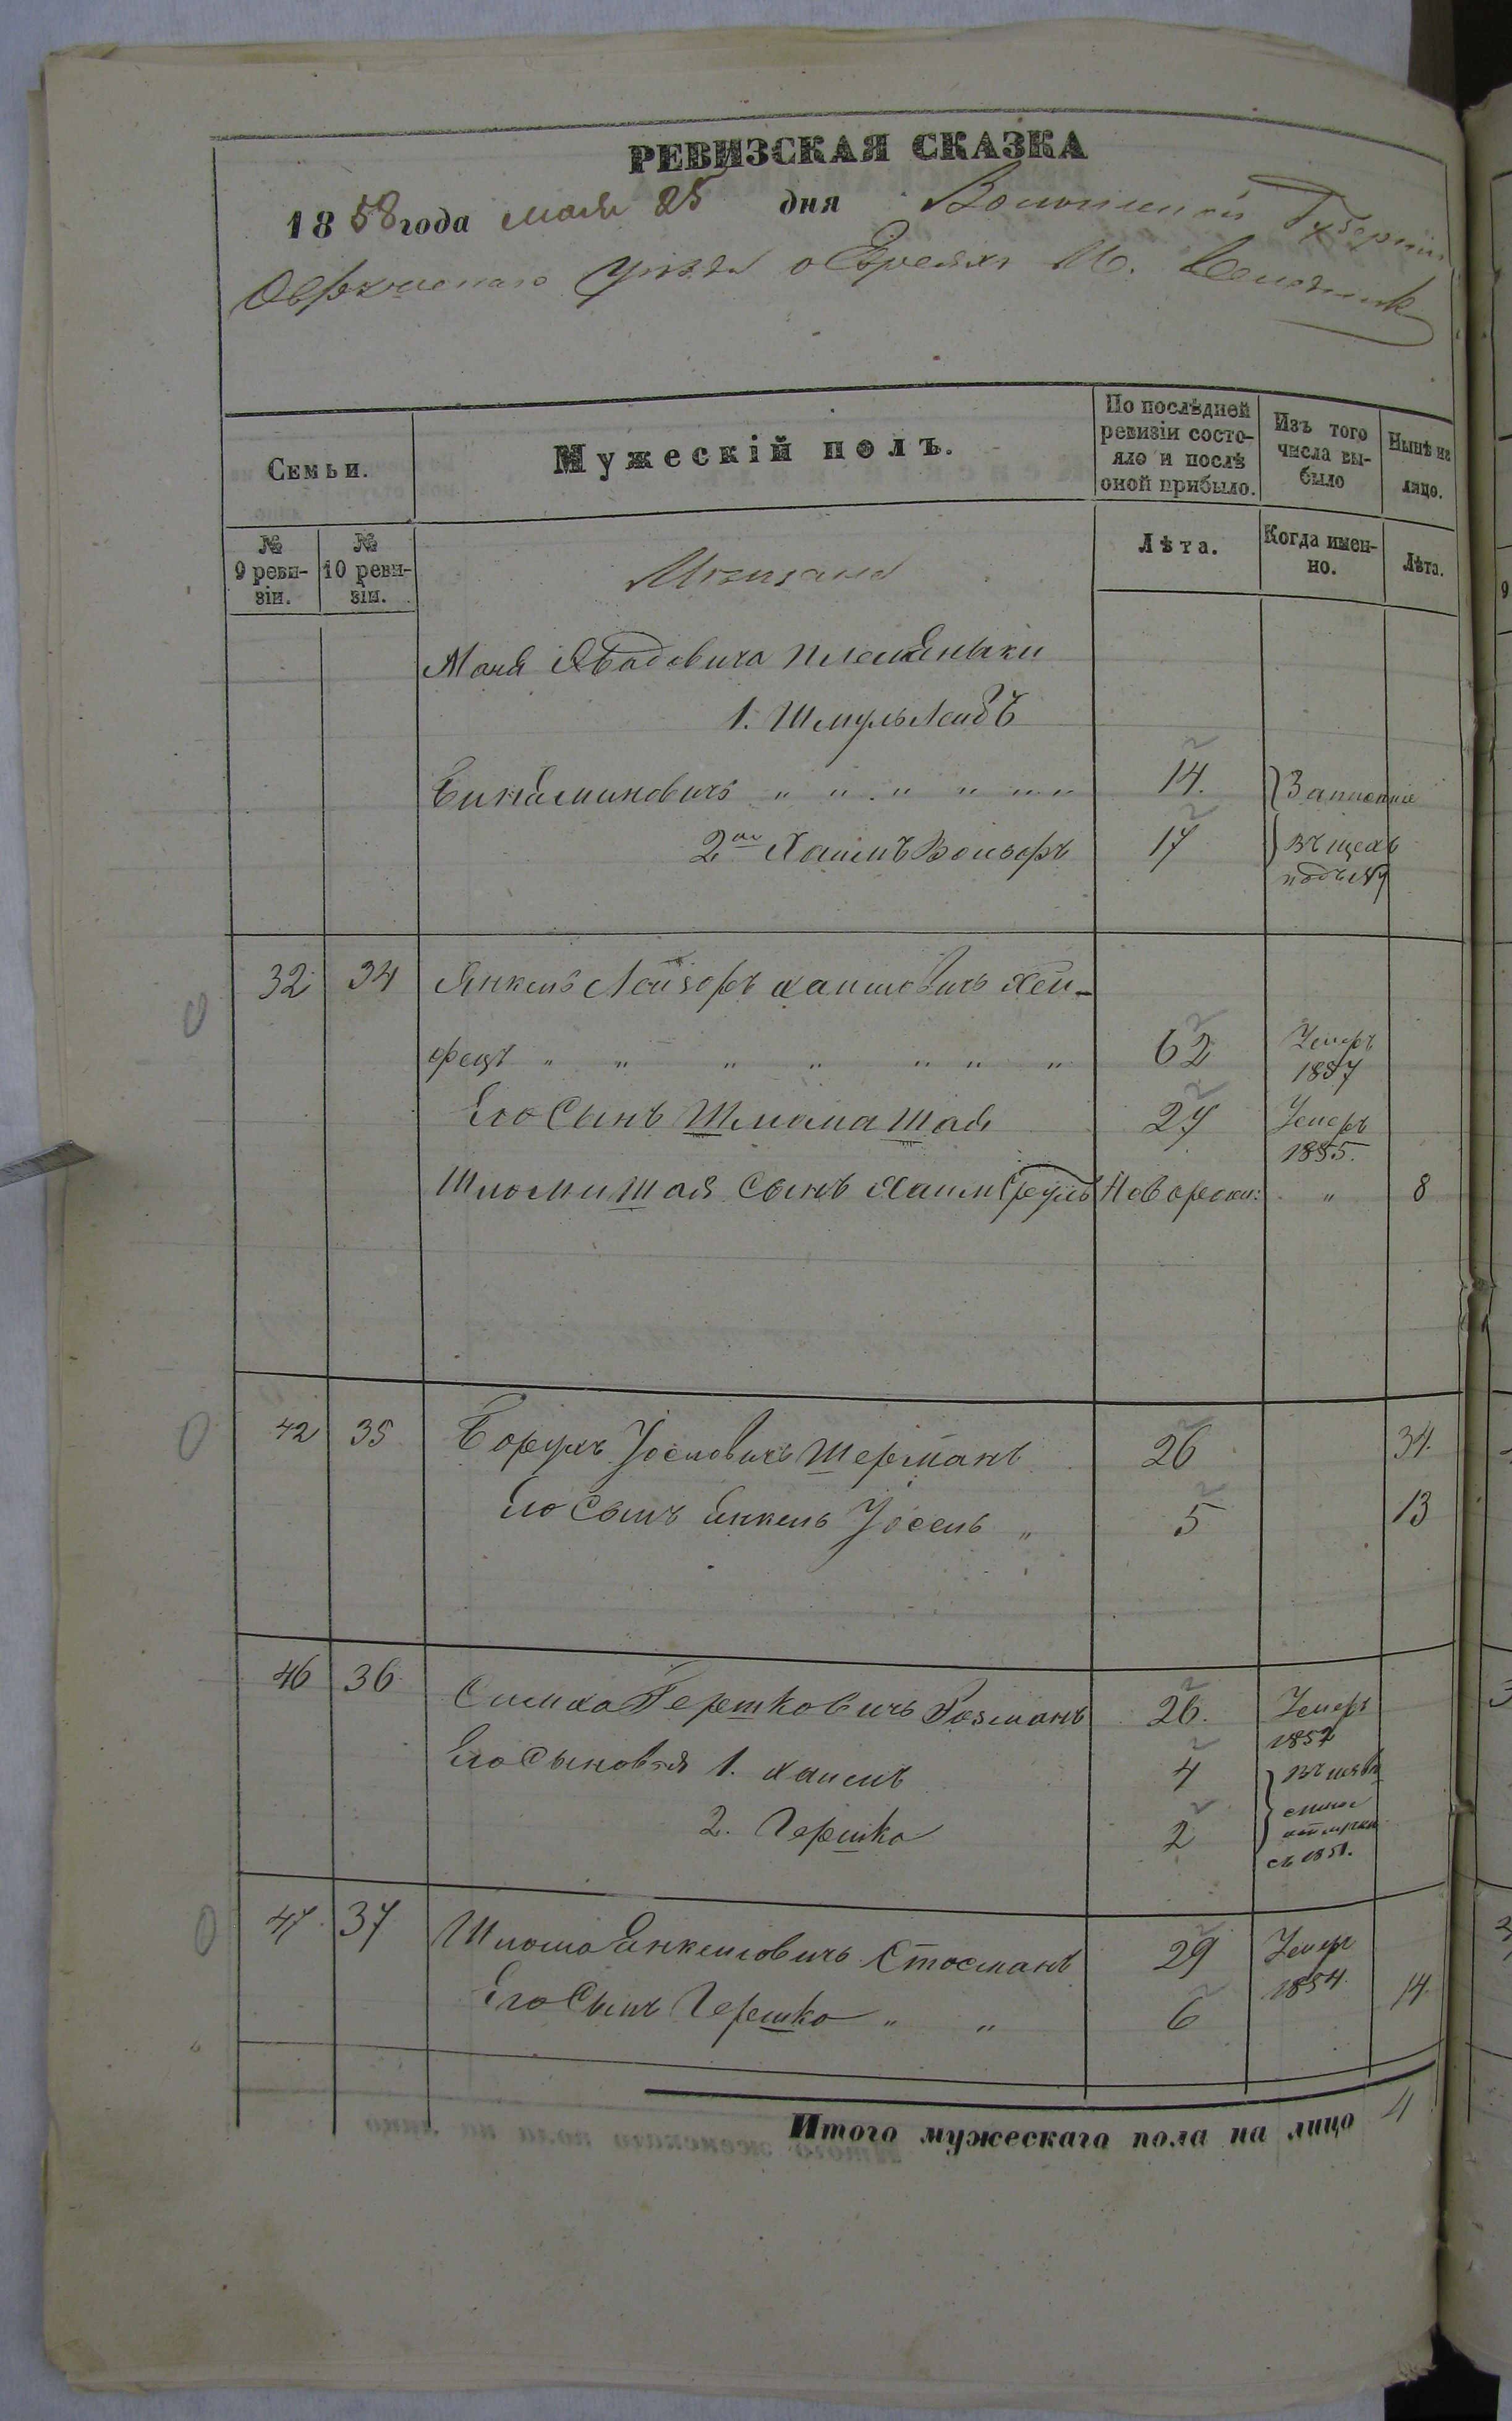 РЕВИЗСКАЯ СКАЗКА
1858 года мая 25 дня Волынской Губернии
Овручскаго Уезда о Евреяхъ М.
Семьи.
Мужескій полъ.
По послѣдней ревизіи состояло и послѣ оной прибыло.
Изъ того числа выбыло
Нынѣ на лицо.
№ 9 ревизіи.
№ 10 ревизіи.
Лѣта.
Когда именно.
Лѣта.
Мещане
племяники
1. Шмуль Лейбъ
14. Записанные
2й Хаимъ Вольфъ 17 въ
32 34 Янкель Лейзоръ Хаимовичъ Хей-
фецъ " " " " " " " 62 Умеръ 1857
Его Сынъ Шлиома Шая 27 Умеръ 1855.
Шлиоми Шая Сынъ Хаим Сруль Новорожд: " 8
42 35 Борухъ Йосиовичъ Шерманъ 26 34.
Его Сынъ Янкель Йосель " 5 13
46 36 Симха Гершковичъ Розманъ 26. Умеръ 1857
Его Сыновья 1. Хаимъ 4
2. Гершко 2 съ 1851.
47 37 Шлиома Янкелиовичъ Стосманъ 29 Умеръ 1854.
Его Сынъ Гершко " " 6 14.
Итого мужескаго пола на лицо 4